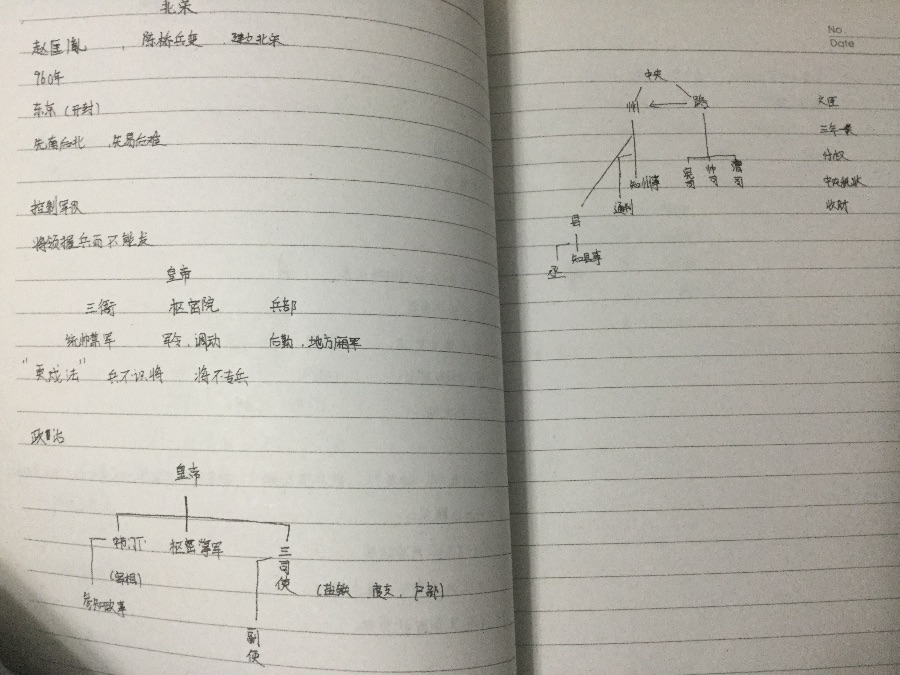 北宋
赵匡胤 , 陈桥兵变 , 建立北宋
960年
东京 (开封)
先南后北 , 先易后难
控制军队
将领握兵而不能发
皇帝
三衙 枢密院 兵部
统帅禁军 军令、调动 后勤、地方厢军
"更戍法" 兵不识将 将不专兵
政治
皇帝
枢密掌军
三司使
(宰相)
(盐铁 度支、户部)
参知政事
副使
No.
Date
中央
州 路
三年一换
分权
宪司 帅司 漕司
知州事
通判
收财
县
知县事
丞